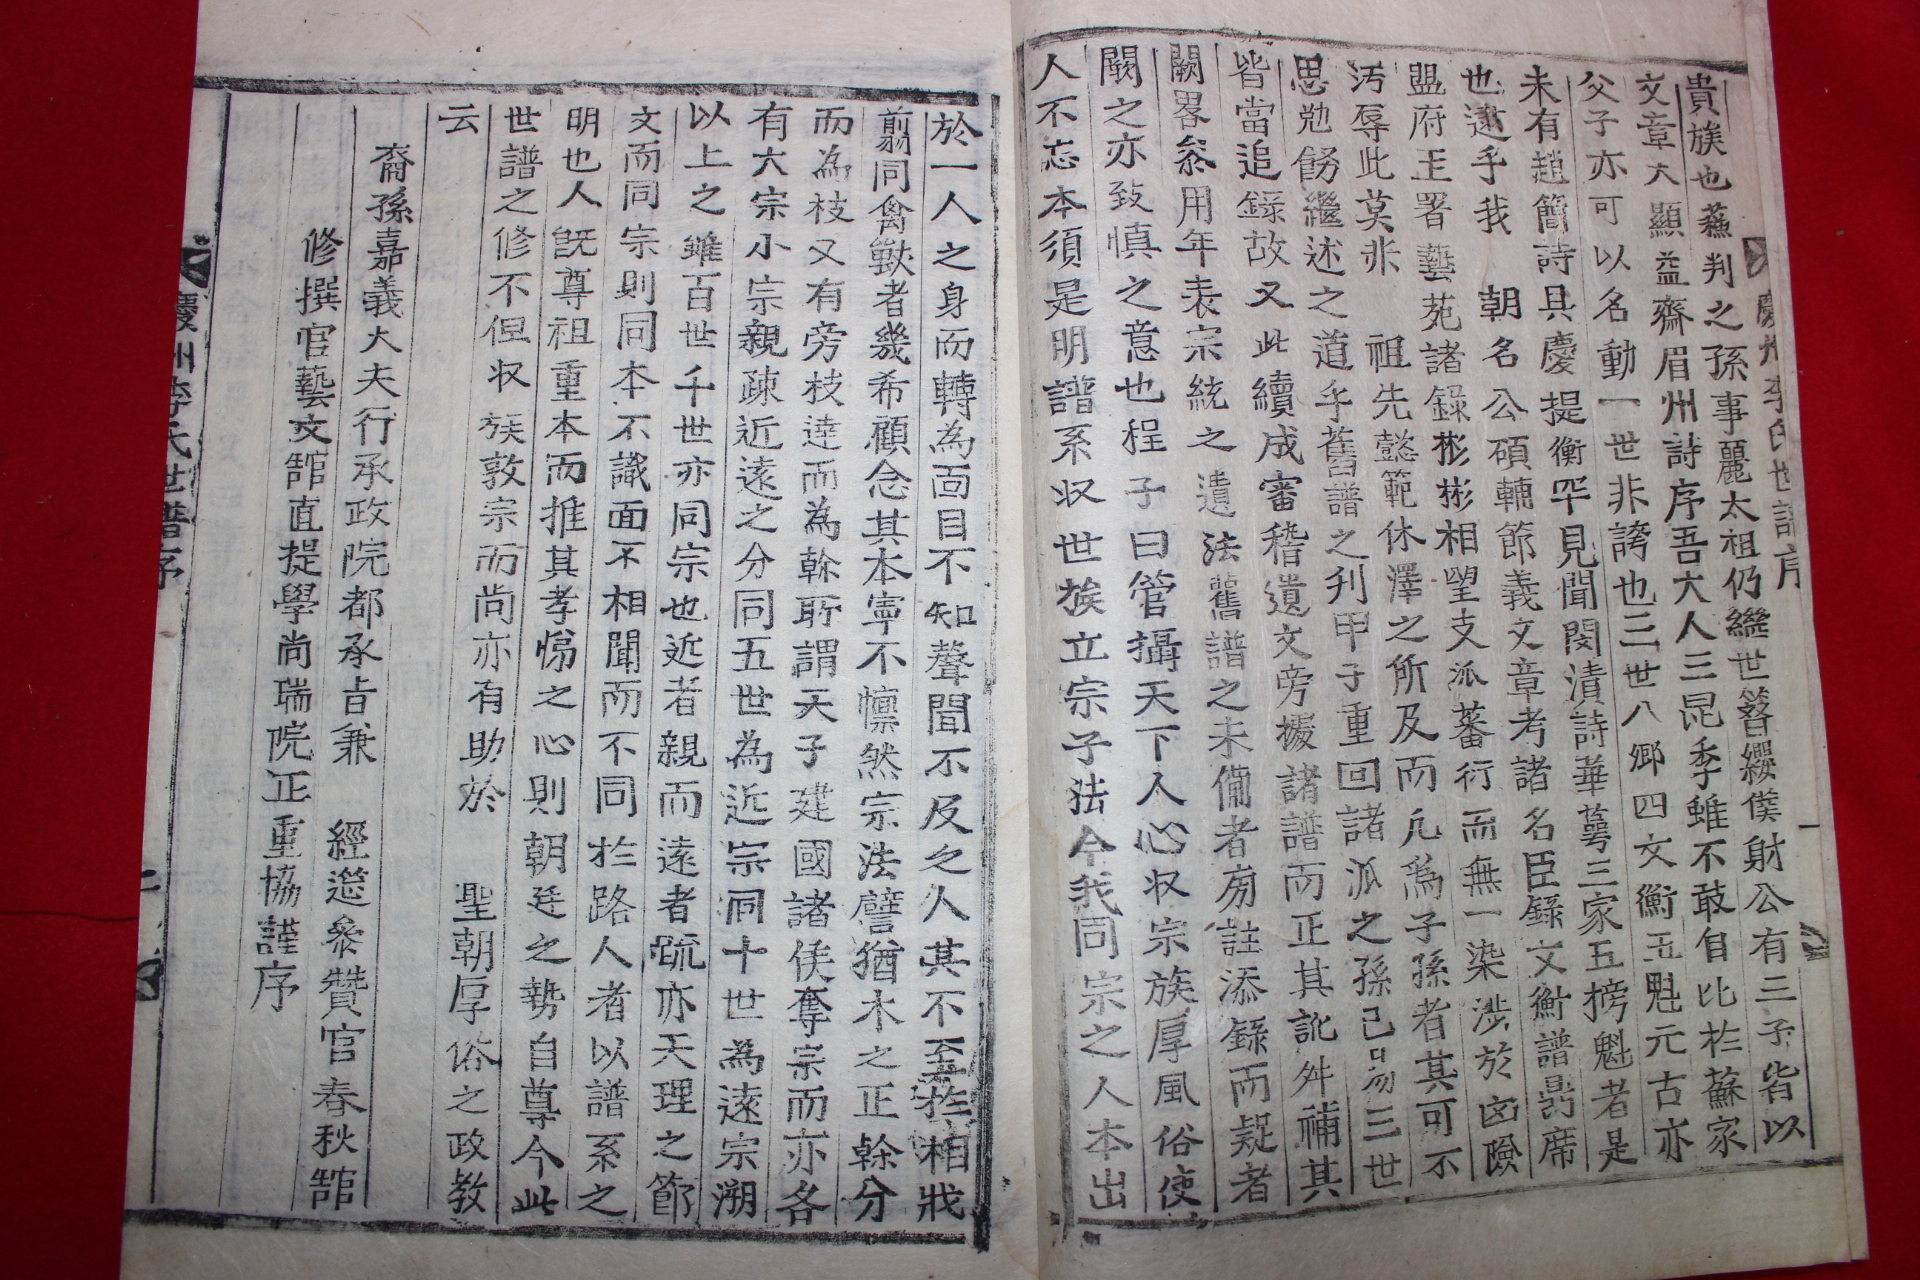 慶州李氏世譜序
貴族也蕪判之孫事麗太祖仍繼世簪纓僕射公有三子皆以
文章大顯益齋眉州詩序吾大人三昆季雖不敢自比於蘇家
父子亦可以名動一世非誇也三世八鄉四文衡五魁元古亦
未有趙簡詩具慶提衡罕見聞閔漬詩華萼三家五榜魁者是
也遬乎我 朝名公碩輔節義文章考諸名臣錄文衡譜鼎席
盟府王署藝苑諸錄彬彬相望支派蕃衍而無一染涉於凶險
汚辱此莫非 祖先懿範休澤之所及而凡爲子孫者其可不
思勉飭繼述之道乎舊譜之刋甲子重回諸派之孫已三世
皆當追錄故又此續成審稽遺文旁援諸譜而正其訛舛補其
闕畧叅用年表宗統之遺法舊譜之未備者旁註添錄而疑者
闕之亦致愼之意也程子曰管攝天下人心収宗族厚風俗使
人不忘本須是明譜系収世族立宗子法今我同宗之人本出
於一人之身而轉為面目不知聲聞不及之人其不至於相戕
翦同禽獸者幾希顧念其本寧不懍然宗法譬猶木之正榦分
而為枝又有旁枝達而為榦所謂天子建國諸侯奪宗而亦各
有大宗小宗親疎近遠之分同五世為近宗同十世為遠宗溯
以上之雖百世千世亦同宗也近者親而遠者疏亦天理之節
文而同宗則同本不識面不相聞而不同於路人者以譜系之
明也人旣尊祖重本而推其孝悌之心則朝廷之勢自尊今此
世譜之修不但収族敦宗而尚亦有助於 聖朝厚俗之政教
云
裔孫嘉義大夫行承政院都承旨兼 經筵叅贊官春秋館
修撰官藝文館直提學尚瑞院正重協謹序
慶州李氏世譜序
二